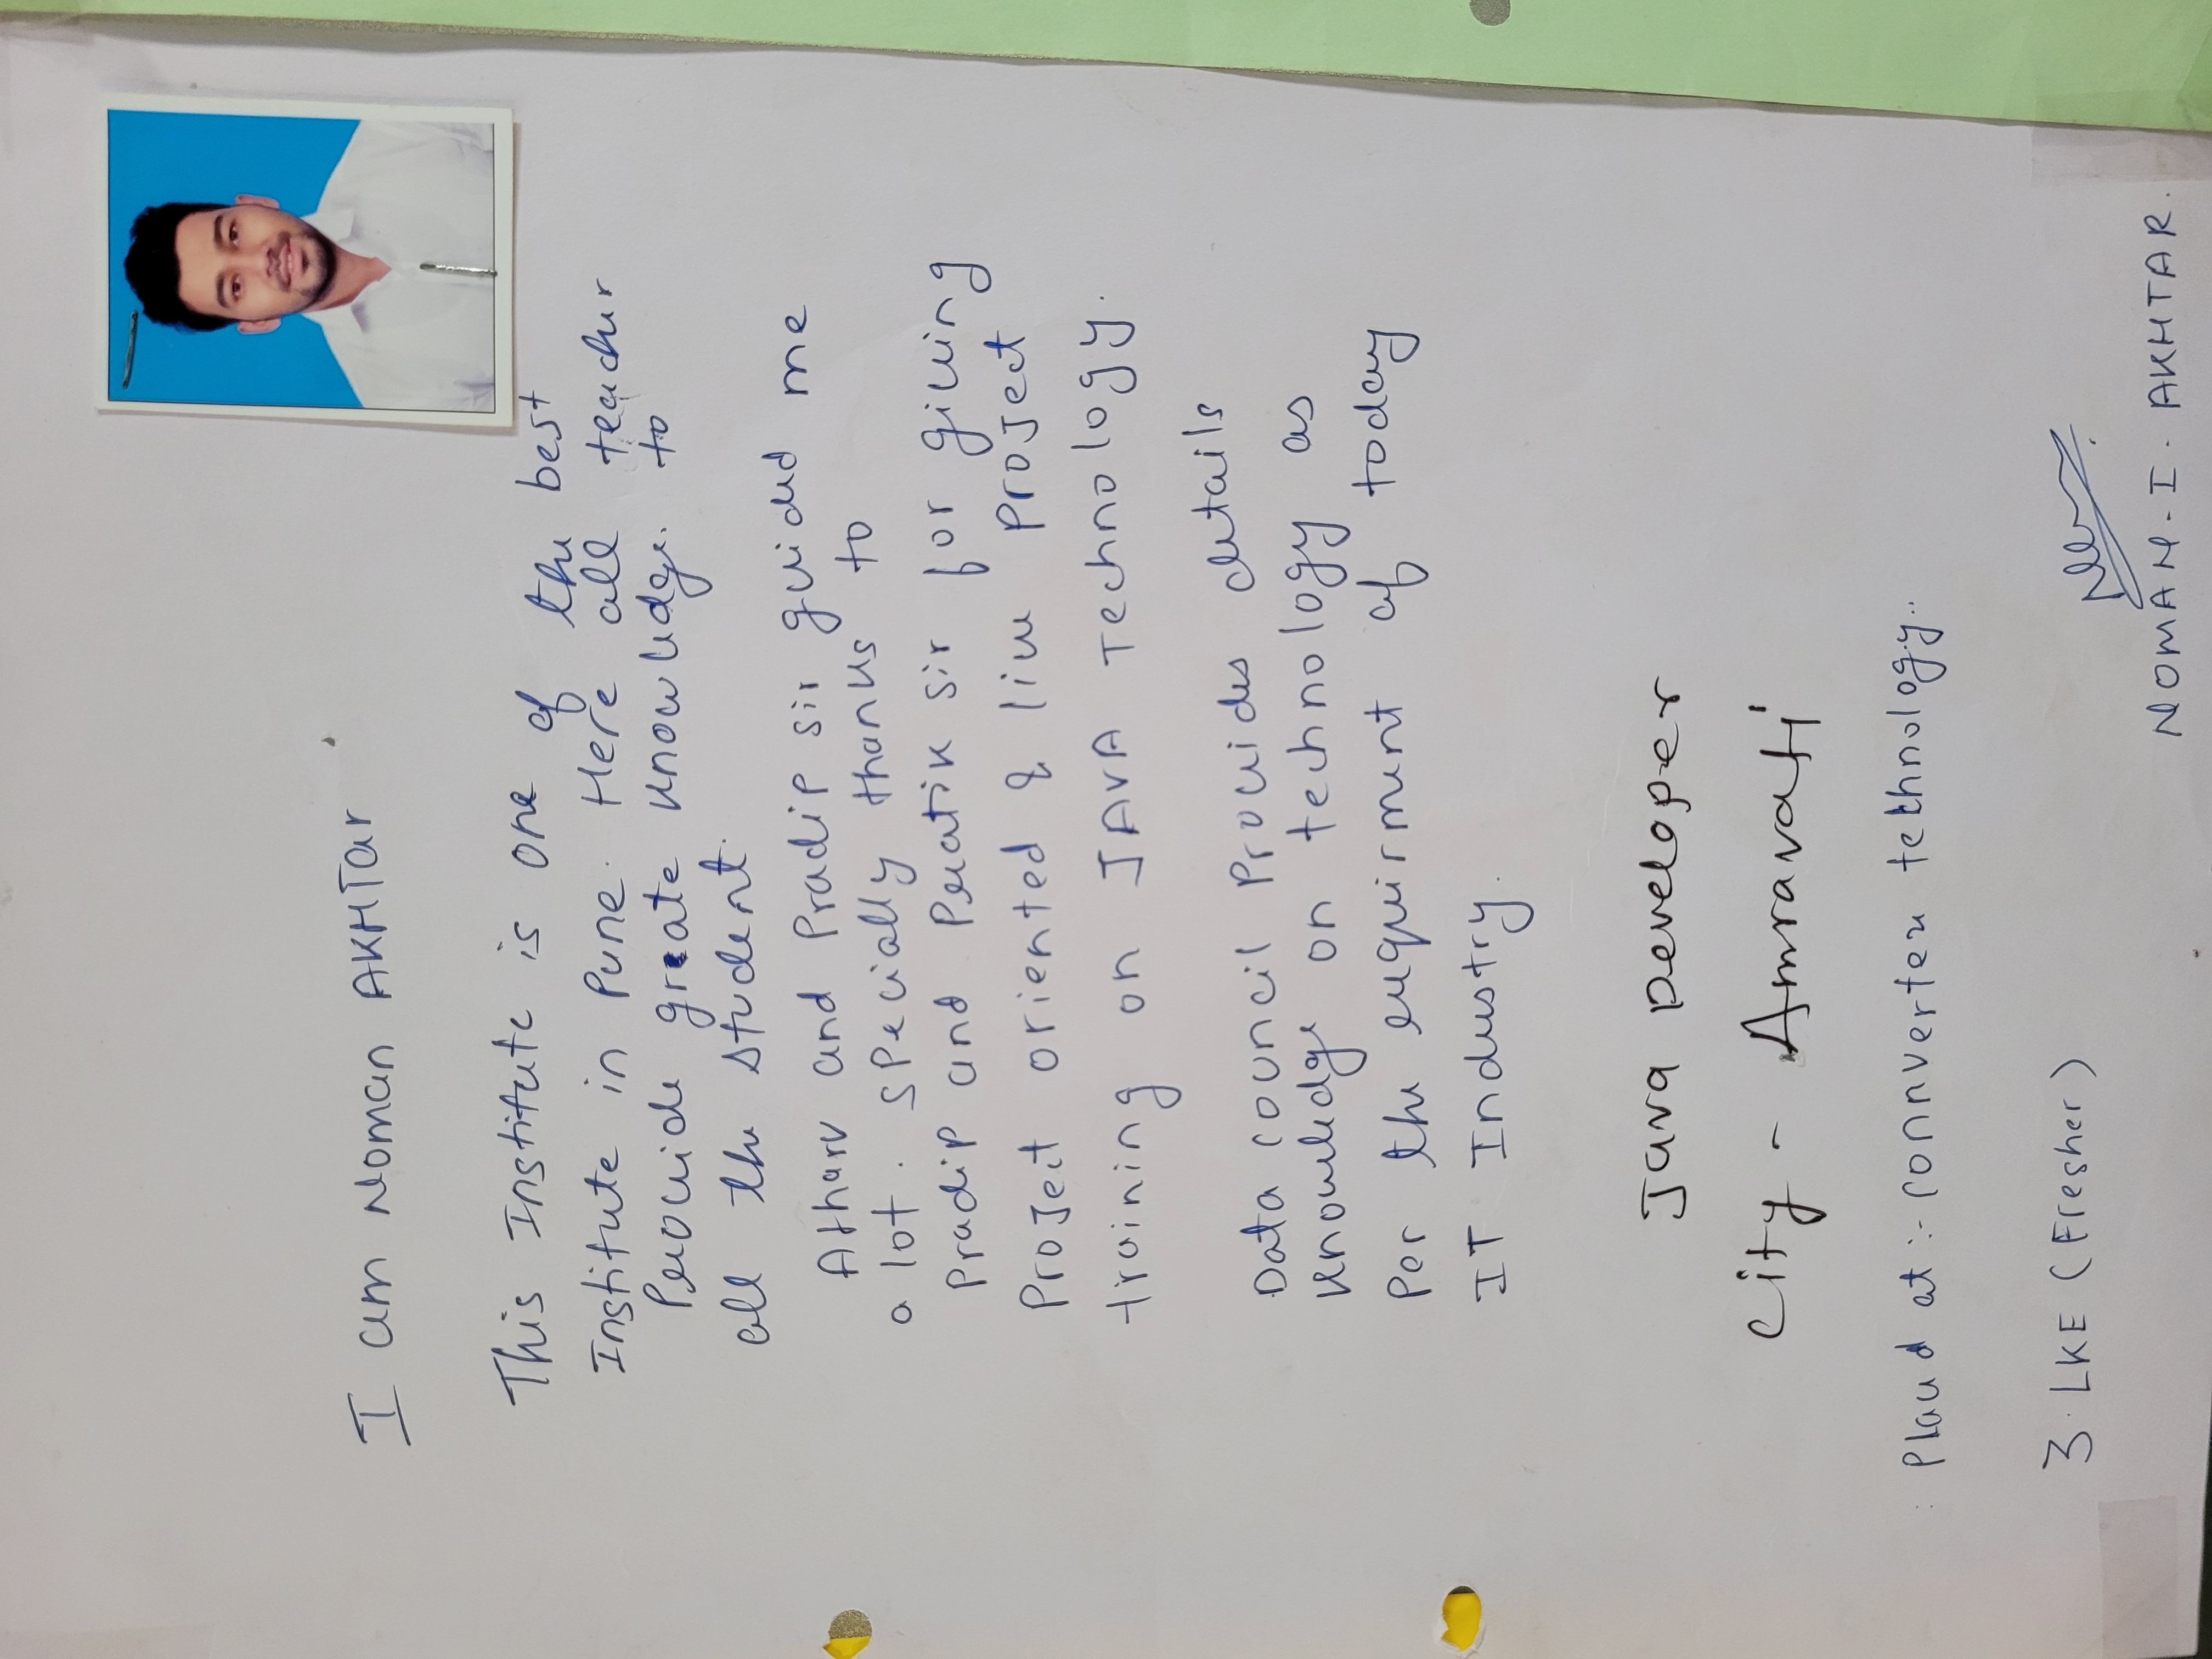 I am Noman AKHTar
This Institute is one of the best
Institute in Pune. Here all teacher
Provide greate knowledge. to
all the student.
Atharv and Pradip sir guided me
a lot. Specially thanks to
Pradip and Pratik sir for giving
Project oriented & live Project
training on JAVA Technology.
Data council Provides details
knowledge on technology as
Per the requirment of today
IT Industry.
Java Developer
City - Amravati
: Placed at :- Connvertex tekhnology..
3. LKE (Fresher)
NOMAN. I. AKHTAR.